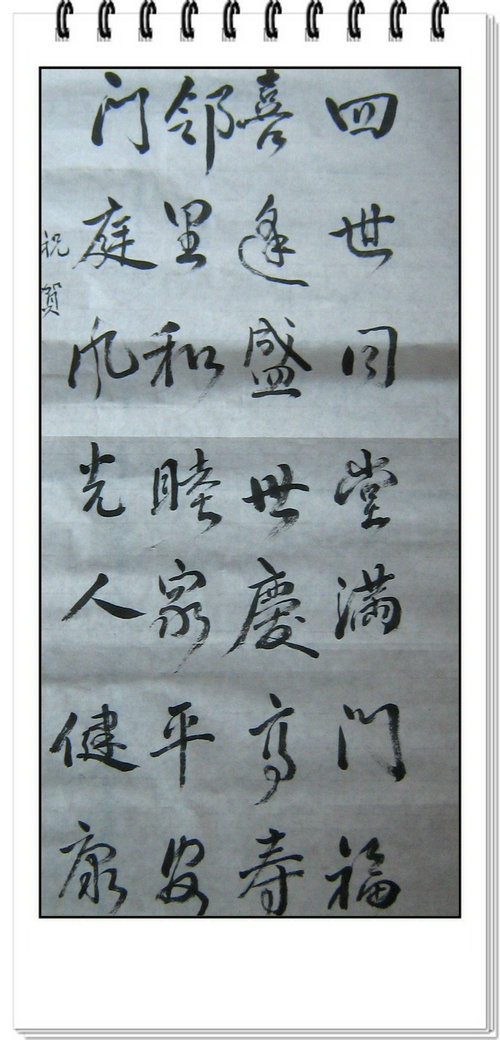 四世同堂满门福
喜逢盛世慶高寿
邻里和睦家平安
门庭风光人健康
祝贺